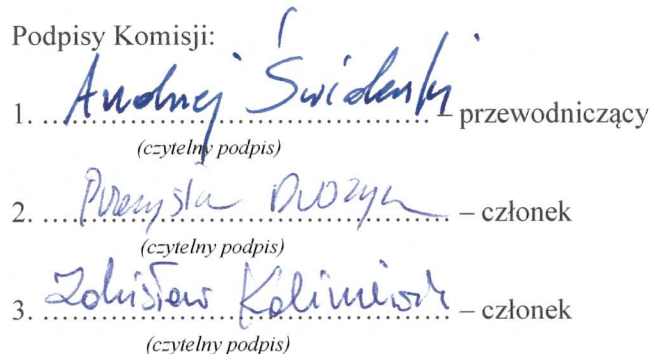 Podpisy Komisji:
1. Andrzej Świderski – przewodniczący
(czytelny podpis)
2. Przemysław – członek
(czytelny podpis)
3. Zdzisław – członek
(czytelny podpis)